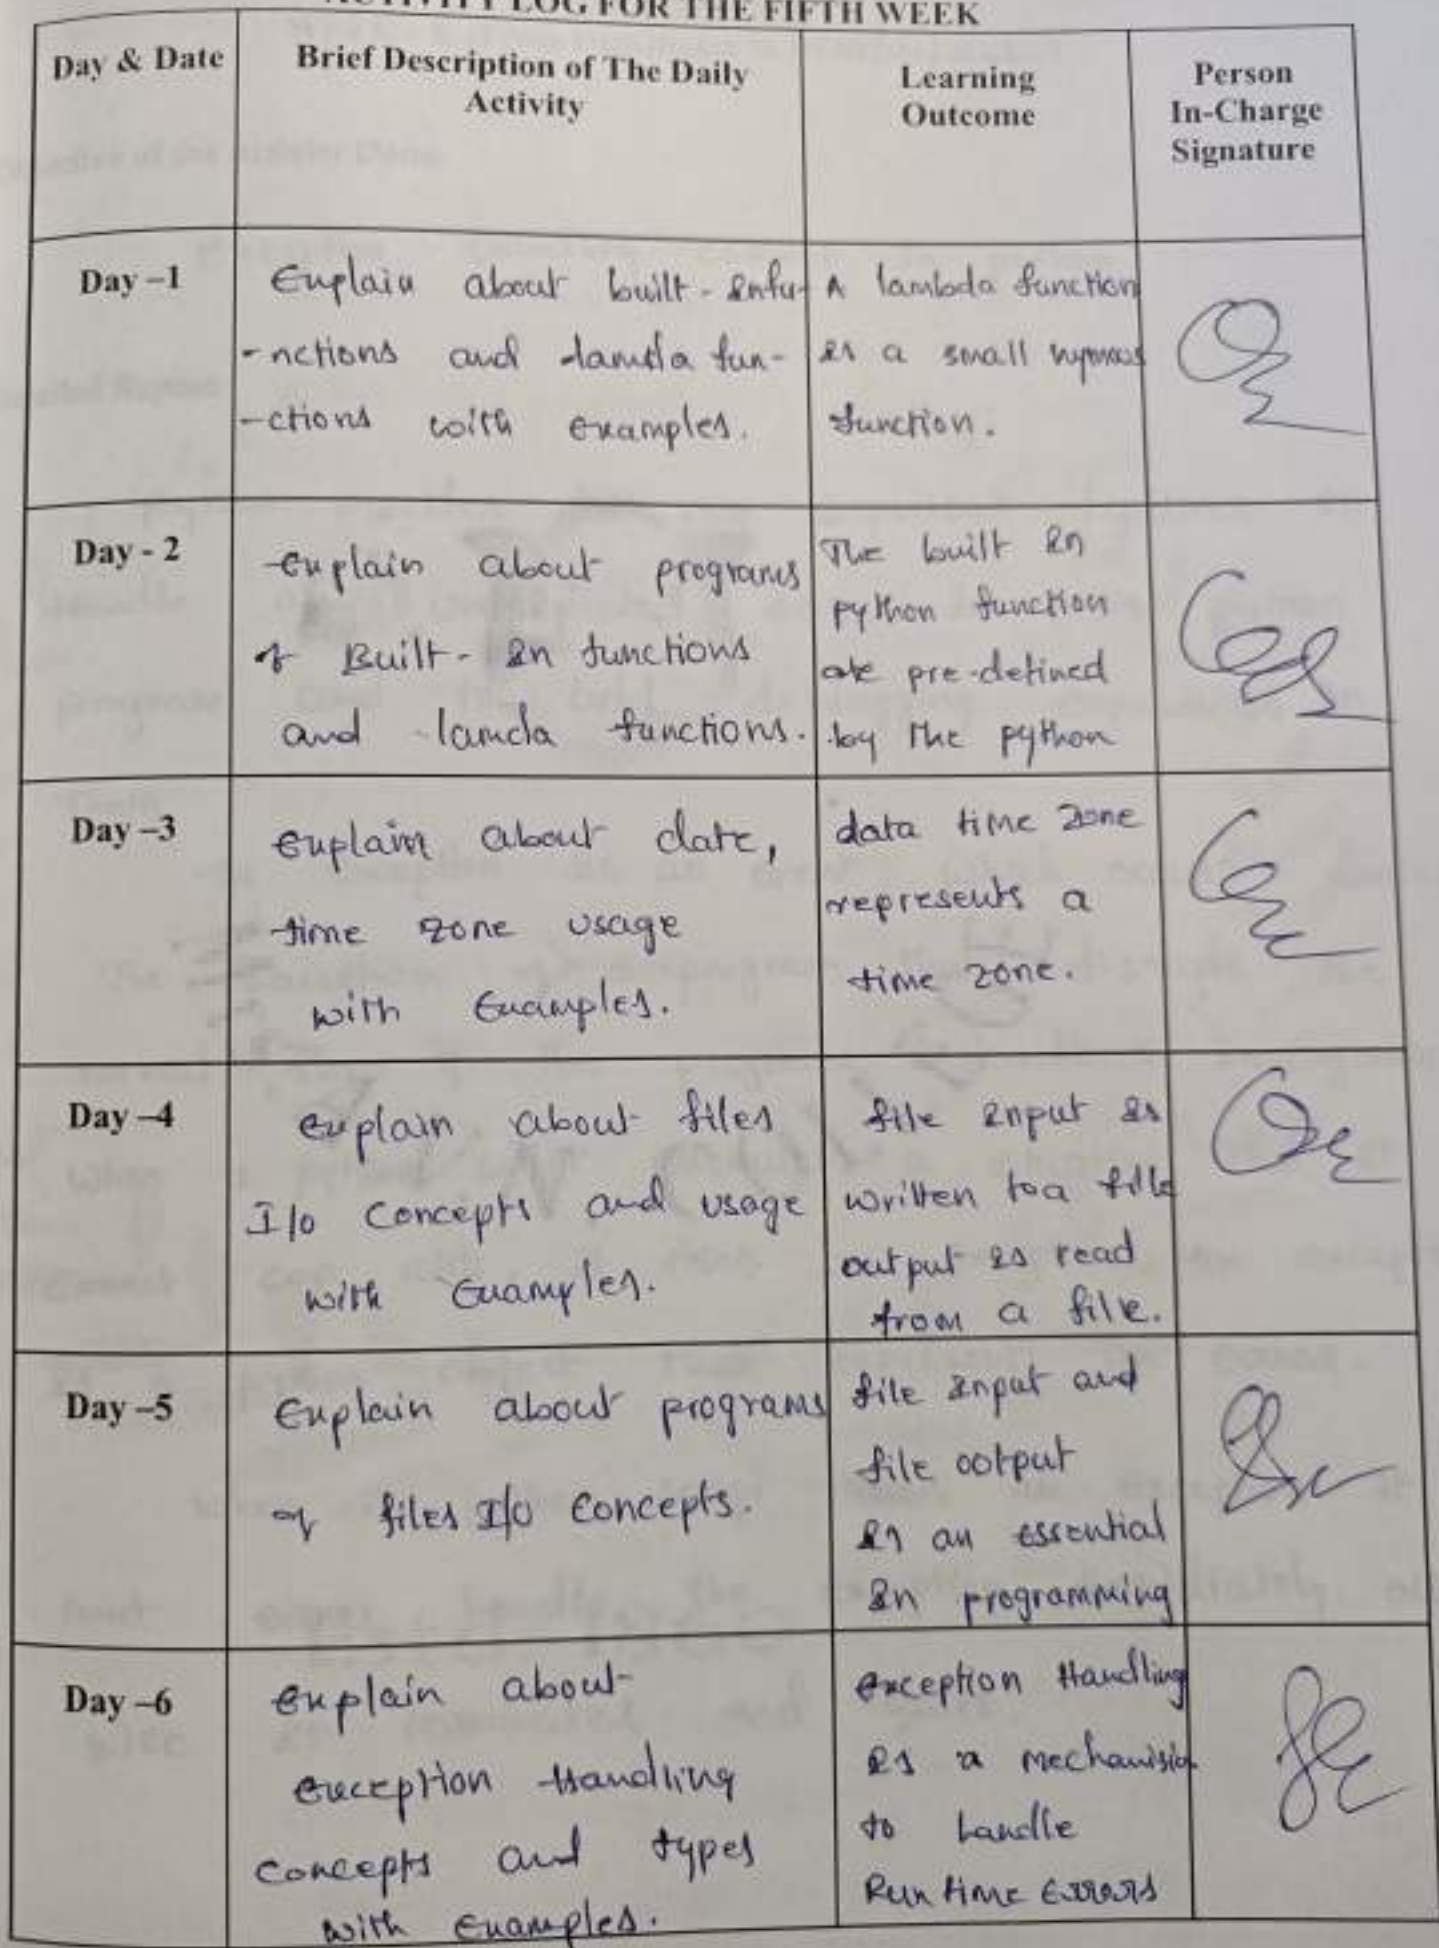 ACTIVITY LOG FOR THE FIFTH WEEK
Day & Date
Brief Description of The Daily
Activity
Learning
Outcome
Person
In-Charge
Signature
Day –1
Explain about built-Infu-
-nctions and lamda fun-
-ctions with examples.
A lambda function
is a small
function.
Day - 2
explain about programs
of Built-In functions
and lamda functions.
The built in
python function
are pre-defined
by the python
Day –3
explain about date,
time zone usage
with Examples.
data time zone
represents a
time zone.
Day –4
explain about files
I/o concepts and usage
with Examples.
file input is
written to a file
output is read
from a file.
Day –5
Explain about programs
of files I/O concepts.
file input and
file ootput
is an essential
in programming
Day –6
explain about
exception Handling
concepts and types
with examples.
exception Handling
is a mechanisim
to handle
Run time Errors